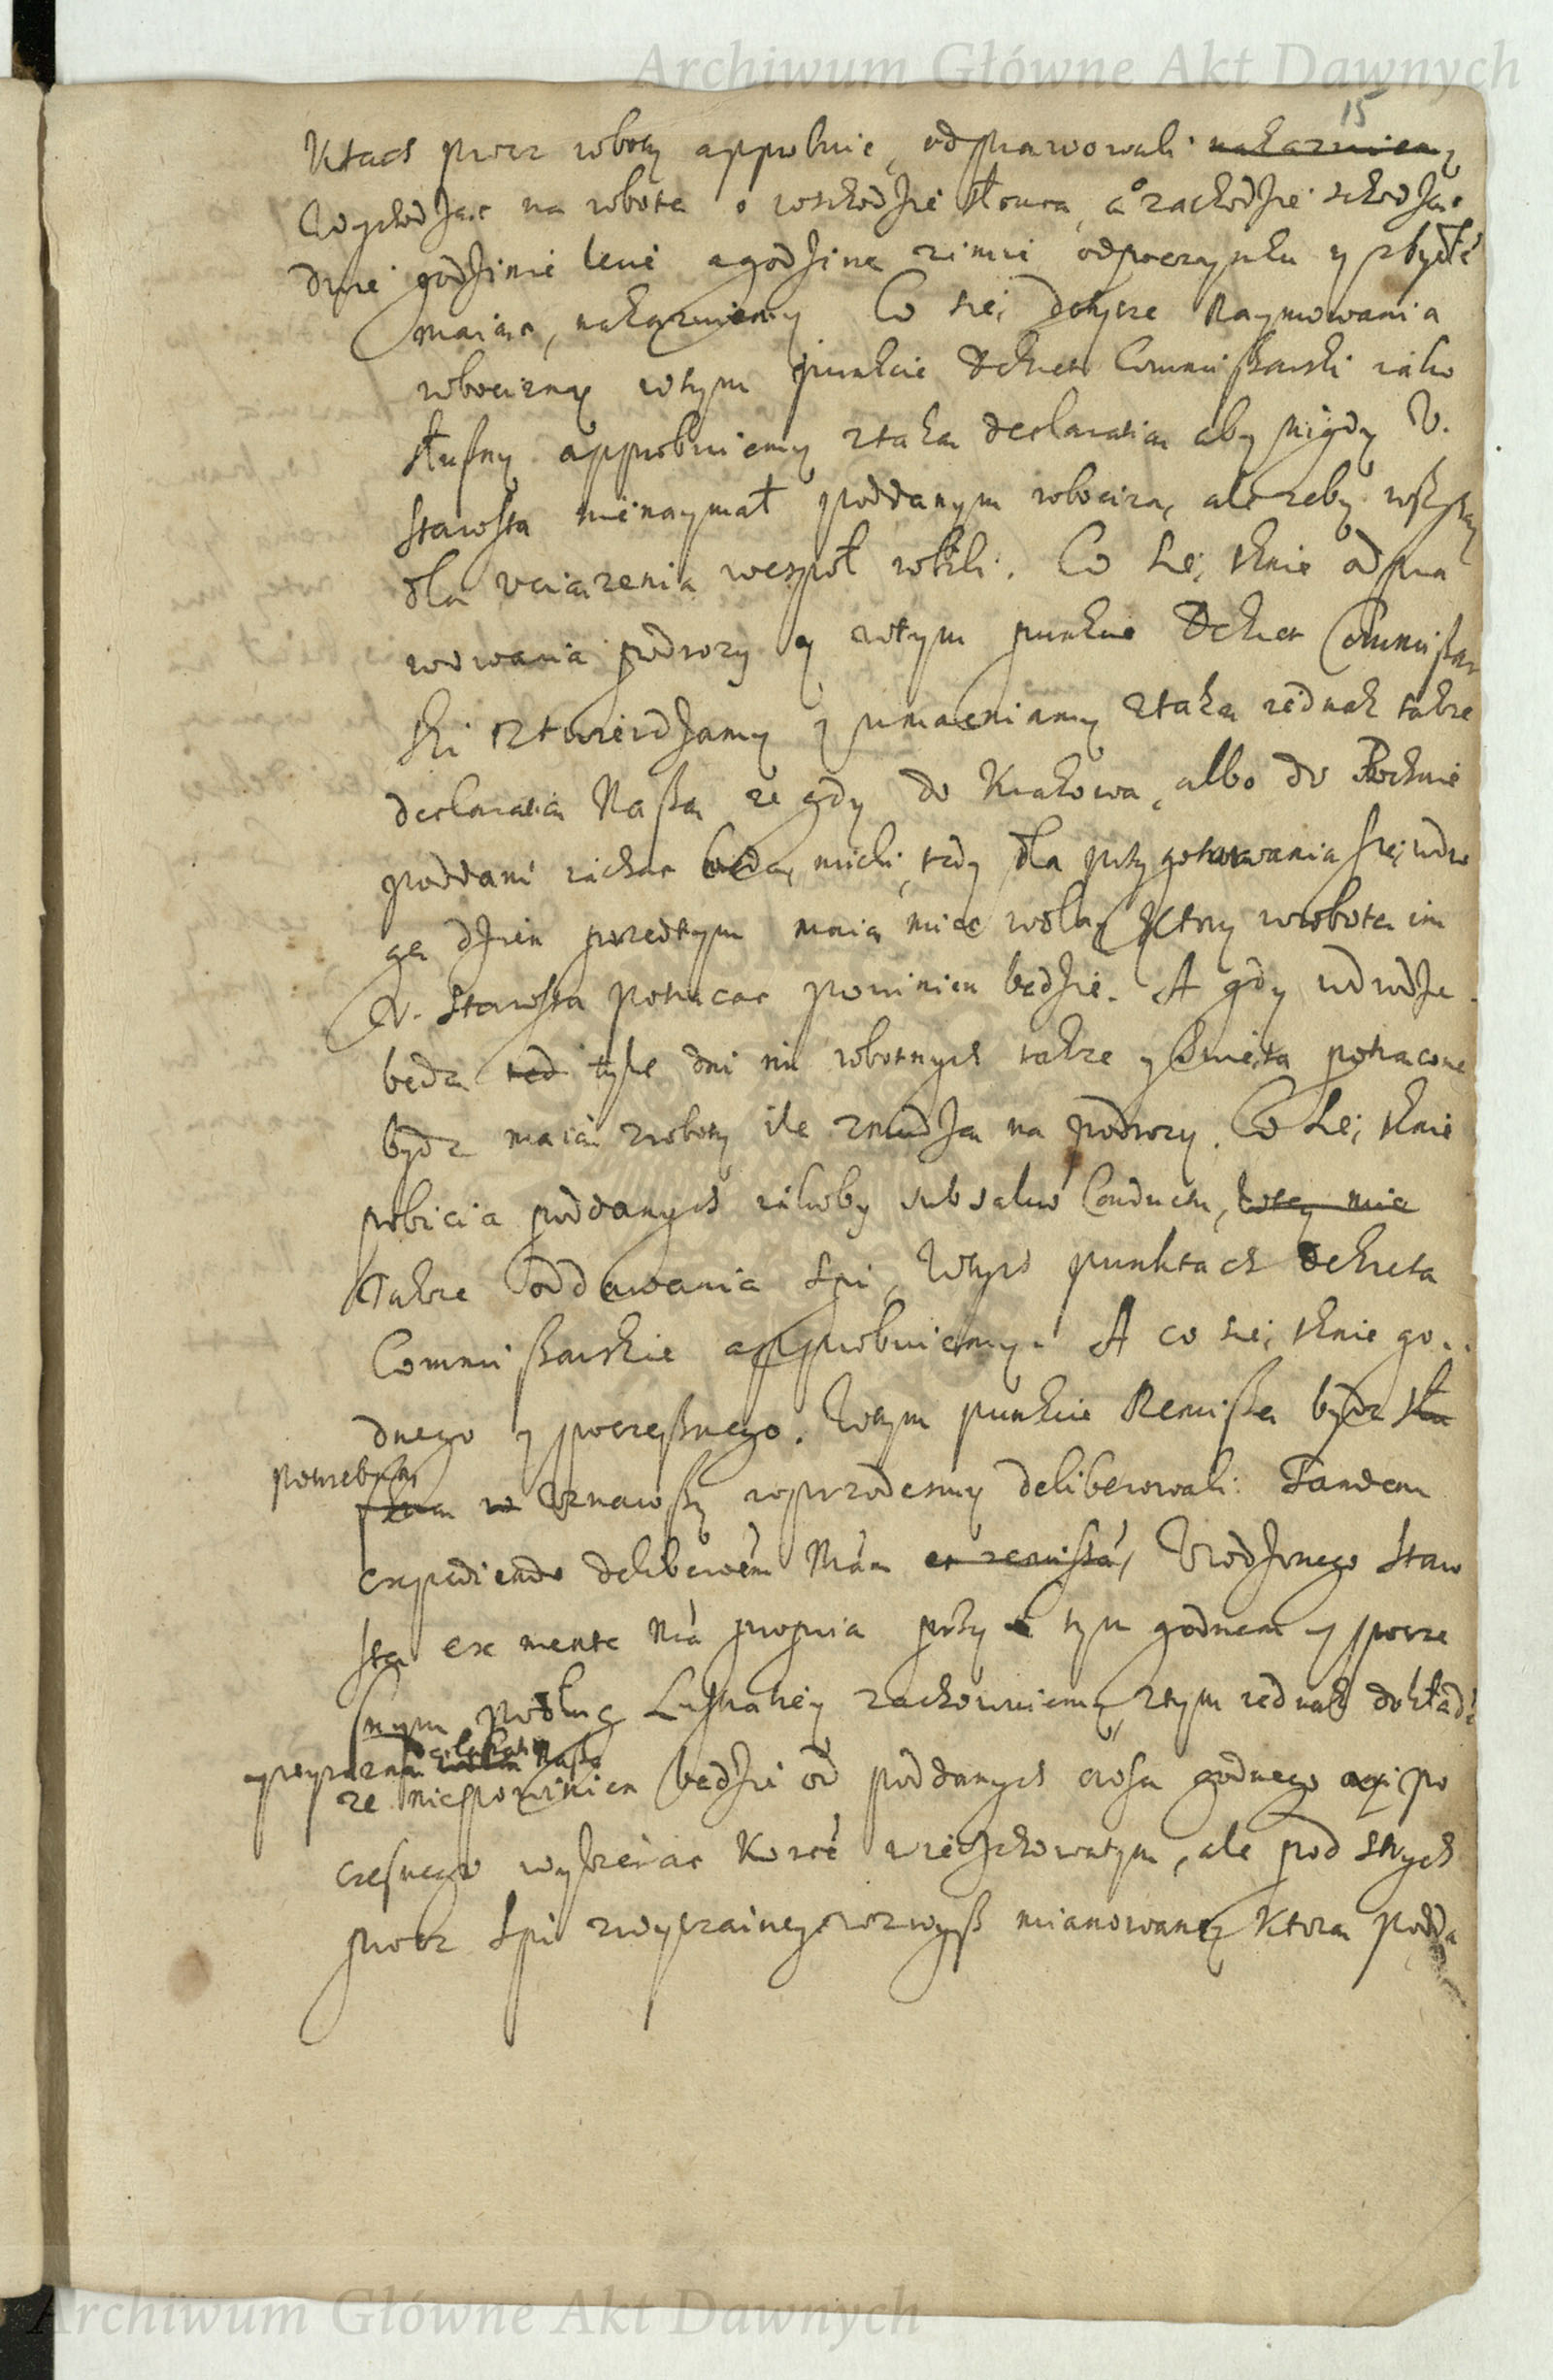 Archiwum Główne Akt Dawnych
15
ktach prócz roboty approbuie, odprawowali nakazuiemy
Wychodząc na robotę o wschodzie słonca, a o zachodzie schodząc
dwie godzinie lecie a godzinę zimie odpoczynku y z bydłē
maiąc, nakazuiemy Co się dotycze Naymowania
robocizny wtym punkcie Dekret Commißarski iako
słuszny approbuiemy z taką declaratią aby nigdy U.
Starosta nienaymał poddanym robocizn, ale zeby wszyscy
dla vciązenia wespoł robili. Co się tknie odpra
wowania podrozy y wtym punkcie Dekret Commißar
ski ztwierdzamy y umacniamy z taką iednak takze
declaratią Naßą ze gdy do Krakowa, albo do Bochnie
poddani iachac będą mieli, tedy dla przygotowania się w dro
gę dzien przedtym maią miec wolny ktory w robotę im
U. Starosta potracac powinien będzie. A gdy w drodze
będą ted tyle dni nie robotnych takze y Swięta potracone
bydz maią z roboty ile zmudzą na podrozy. Co się tknie
pobicia poddanych iakoby sub salvo Conductu,
Takze oddawania Spi, Wtych punktach Dekreta
Commißarskie approbuiemy. A co się tknie go..
dnego y poczesnego. Wtym punkcie Remißą bydz
potrzebną
Uznawßy wprzodesmy deliberowali: Tandem
expediendo deliberoēm Nrām et remißā, Urodzonego Staro
stę ex mente Nrā propria przy tym godnem y pocze
snym podług Lustratiey zachowuiemy, z tym iednak dokładē
declaratią Naßą
ze niepowinien będzie od poddanych owsa godnego ani po
czesnego wybierac korcē wierzchowatym, ale pod strych
procz Spi zwyczainey zwyß mianowaney ktorą podda
Archiwum Główne Akt Dawnych